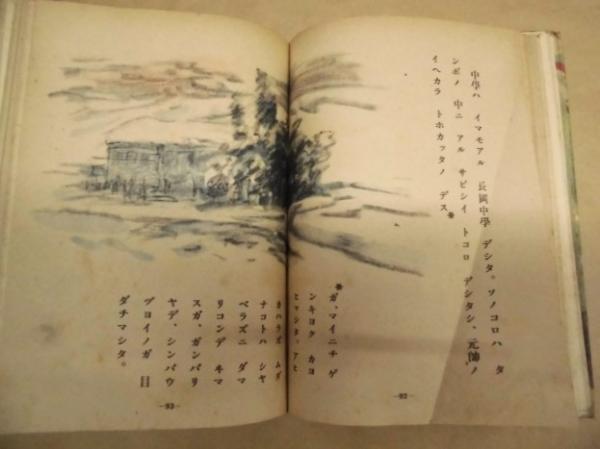 中學ハ イマモアル 長岡中學 デシタ。ソノコロハ タ
ンボノ 中ニ アル サビシイ トコロ デシタシ、元帥ノ
イヘカラ トホカッタノ デス
ガ、マイニチ ゲ
ンキヨク カヨ
ヒマシタ。アヒ
カハラズ ムダ
ナコトハ シヤ
ベラズニ ダマ
リコンデ キマ
スガ、ガンバリ
ヤデ、シンバウ
ヅヨイノガ 目
ダチマシタ。
—92—
—93—